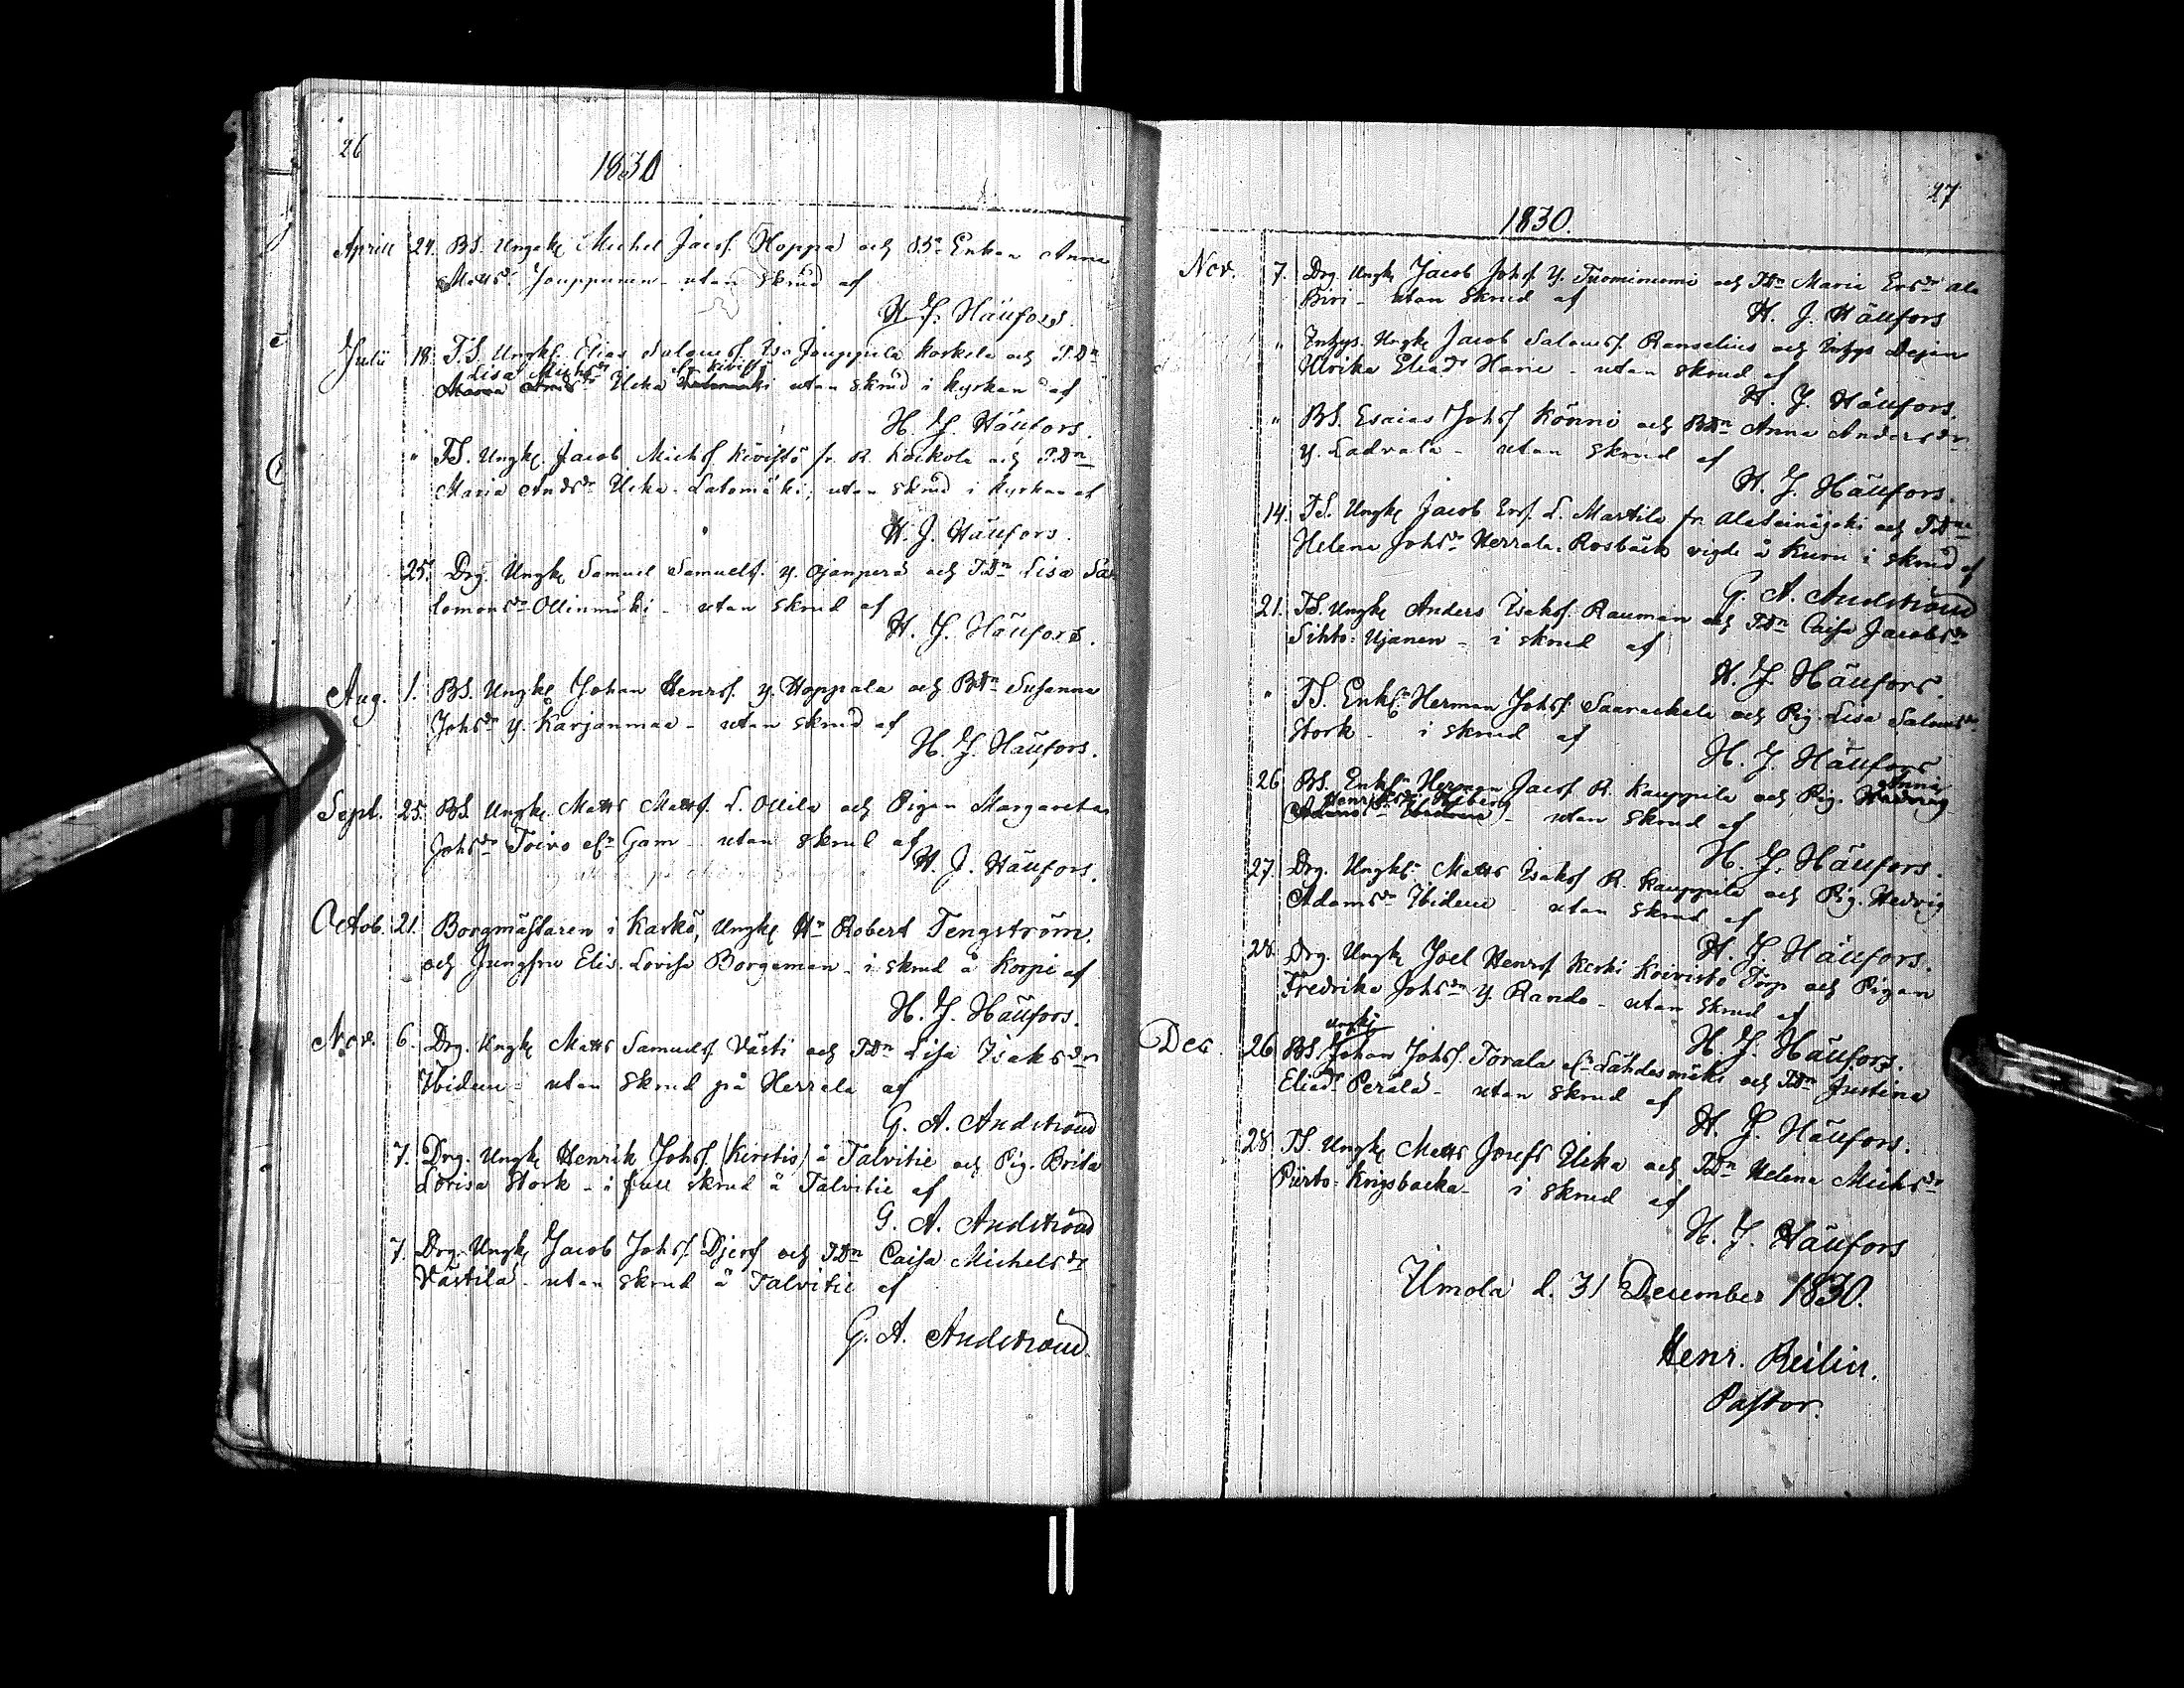 26
1830
Aprill 24. BS. Ungk Michel Jacsf. Hoppa och BSr Enkan Anna
Mattsr. Jouppunen - utan skrud af
H. J. Häufors.
Julii 18. T.S. Ungk. Elias Salomsf. Jouppila Korkila och T.Dn
Lisa Michsdr
Maria Andsdr Ucka utan skrud i kyrkan af
H. J. Häufors.
" T.S. Ungk. Jacob Michsf. Kivistö fr. R. Koskela och T.Dn
Maria Andsdr Ucka-Latomäki, utan skrud i kyrkan af
H. J. Häufors.
25. Drg. Ungk Samuel Samuelsf. y. Ojanperä och T.Dn Lisa Sa-
lomonsdr Ollinmäki - utan skrud af
H. J. Häufors.
Aug. 1. BS. Ungk Johan Henrsf. y. Hoppala och BDn Susanna
Johsdr y. Karjanmaa - utan skrud af
H. J. Häufors.
Sept. 25. BS. Ungk. Matts Mattsf. L. Ollila och Pigan Margareta
Johsdr Toivo eln Gam - utan skrud af
H. J. Häufors.
Octob. 21. Borgmästaren i Kaskö, Ungk Hn Robert Tengström.
och Jungfru Elis. Lovisa Borgeman - i skrud å Korpi af
H. J. Häufors.
Nov. 6. Drg. Ungk Matts Samuelsf. Västi och TDn Lisa Isaksdr
Ibidem - utan skrud på Herrala af
G. A. Andströud
7. Drg. Ungk Henrik Johsf. (Kirstis) å Talvitie och Pig. Brita
Lovisa Stork - i full skrud å Talvitie af
G. A. Andströud
7. Drg. Ungk Jacob Johsf. Djerf och TDn Caisa Michelsdr
Västilä - utan skrud å Talvitie af
G. A. Andströud.
27
1830.
Nov. 7. Drg. Ungk Jacob Johsf. y. Tuomiuomi och TDn Maria Ersdr Ala
Piri - utan skrud af
H. J. Häufors
" Inhys. Ungk Jacob Salomsf. Ranselius och Inhys Dejan
Ulrika Eliadr Harie - utan skrud af
H. J. Häufors.
" BS. Esaias Johsf Könni och BDn Anna Andersdr
y. Ladvala - utan skrud af
H. J. Häufors.
14. TS. Ungk Jacob Ersf. L. Martila fr. Alaseinäjoki och TDn
Helena Johsdr Herrala-Rosbäck vigde å Kuru i skrud af
G. A. Andströud
21. TS. Ungk Anders Isaksf. Rauman och TDn Caisa Jacobsdr
Sihto-Ujanen - i skrud af
H. J. Häufors.
" TS. Enkln Herman Johsf. Saarackala och Pig. Lisa Salomsdr
Stork - i skrud af
H. J. Häufors
Anna
26 BS. Enkln Herman Jacsf R. Kauppila och Pig. Hedvig
Henriksdr
Adamsdr Ibidem - utan skrud af
H. J. Häufors.
27. Drg. Ungk Matts Isaksf R. Kauppila och Pig. Hedvig
Adamsdr Ibidem - utan skrud af
H. J. Häufors.
28. Drg. Ungk Joel Henrsf Koivisto Torp och Pigan
Fredrika Johsdr y. Rando - utan skrud af
H. J. Häufors.
Ungk
Dec 26 BS Johan Johsf. Torala eln Lähdesmäki och TDn Justina
Eliadr Perälä - utan skrud af
H. J. Häufors.
28 TS. Ungk Matts Josefs Ucka och TDn Helena Michsdr
Piirto-Krigsbacka - i skrud af
H. J. Häufors
Ilmola d. 31 December 1830.
Henr. Reilin.
Pastor.